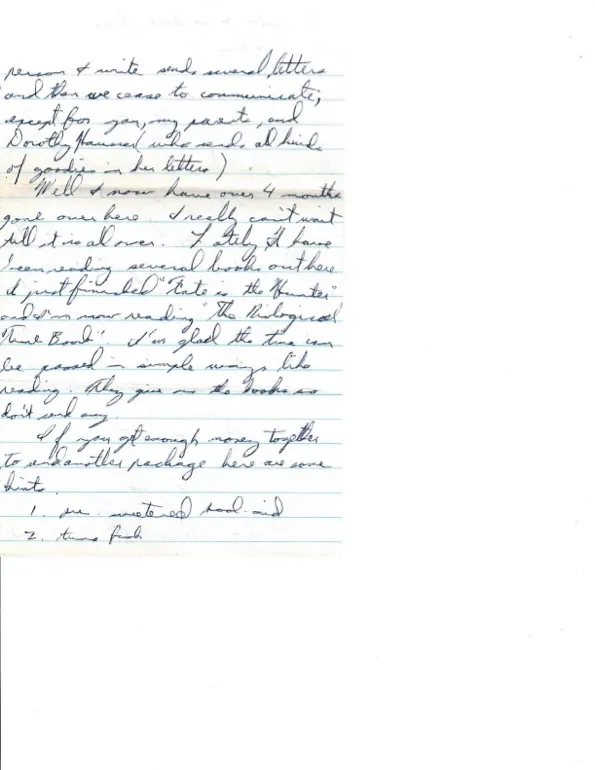 person I write sends several letters
and then we cease to communicate,
except for you, my parents, and
Dorothy (who sends all kinds
of goodies in her letters)
Well I now have over 4 months
gone over here. I really can't wait
till it is all over. Lately I have
been reading several books out here
I just finished "Fate is the Hunter"
and I'm now reading "The Biological
Time Bomb". I'm glad the time can
be passed in simple ways like
reading. They give us the books so
don't send any.
If you get enough money together
to send another package here are some
hints
1. pre-sweetened kool-aid
2. tuna fish